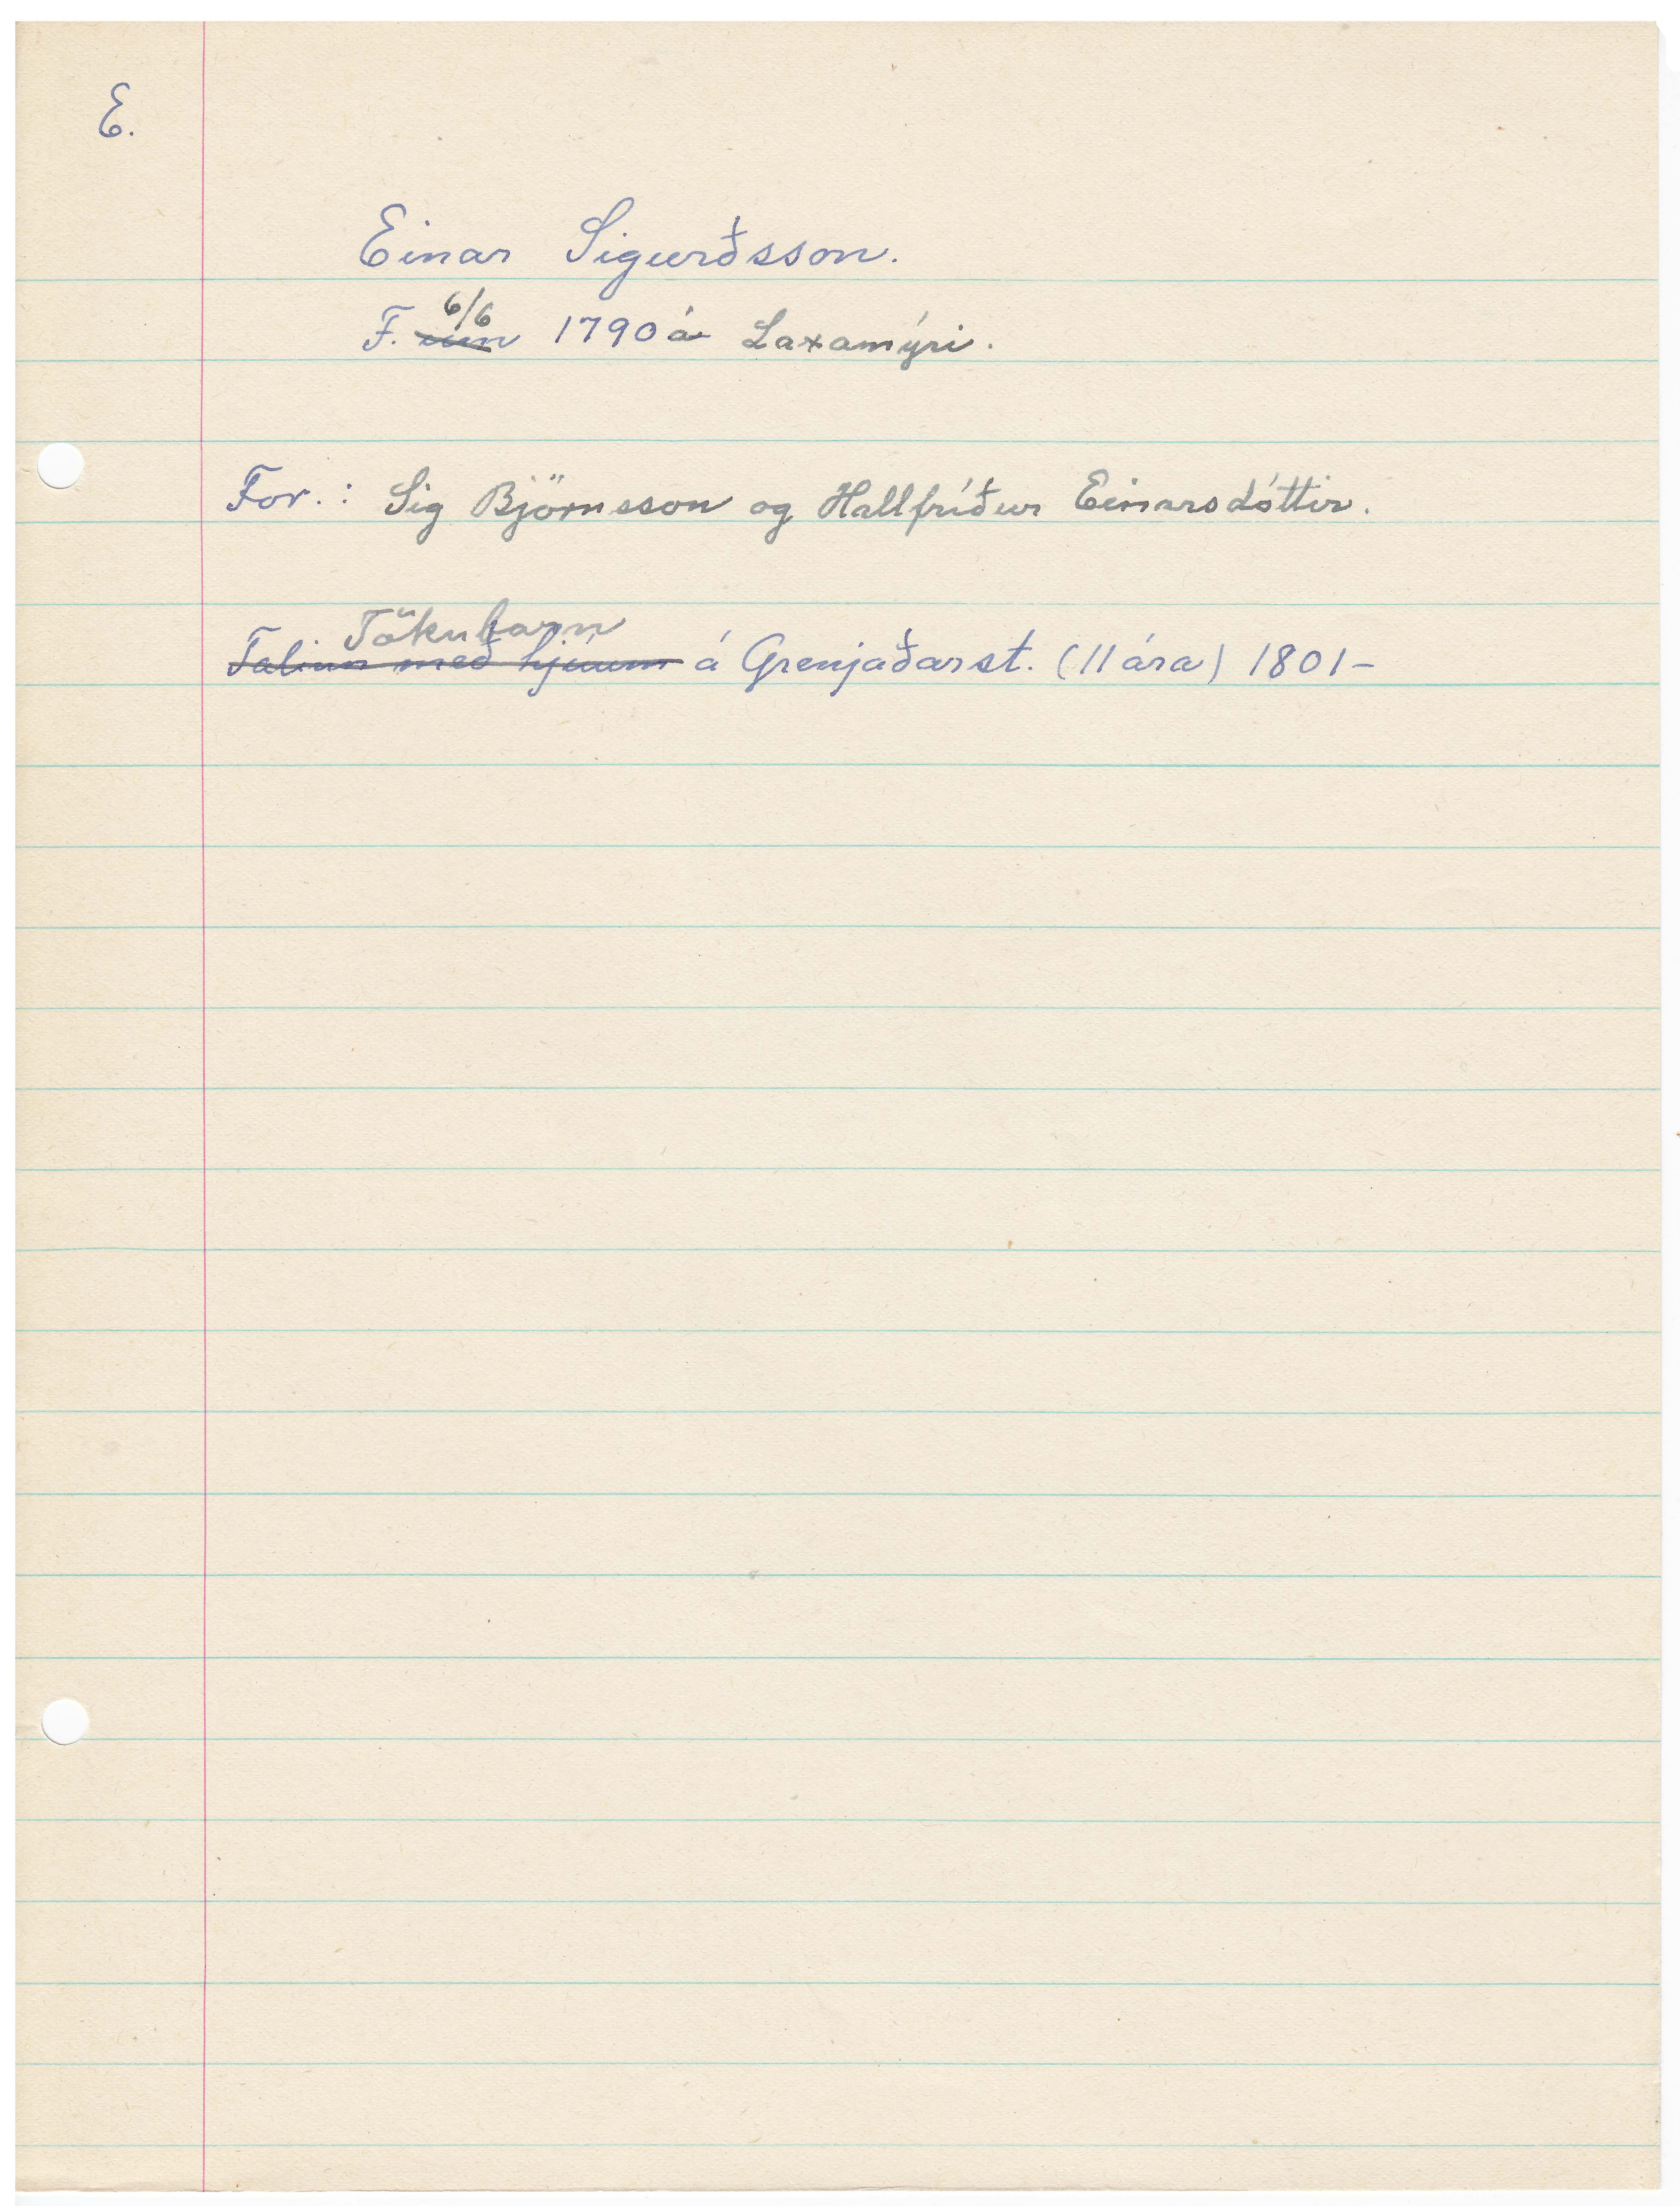 E.
Einar Sigurðsson.
F. um 6/6 1790 á Laxamýri.
For.: Sig Björnsson og Hallfríður Einarsdóttir.
Tökubarn
Talinn með hjúum á Grenjaðarst. (11 ára) 1801-